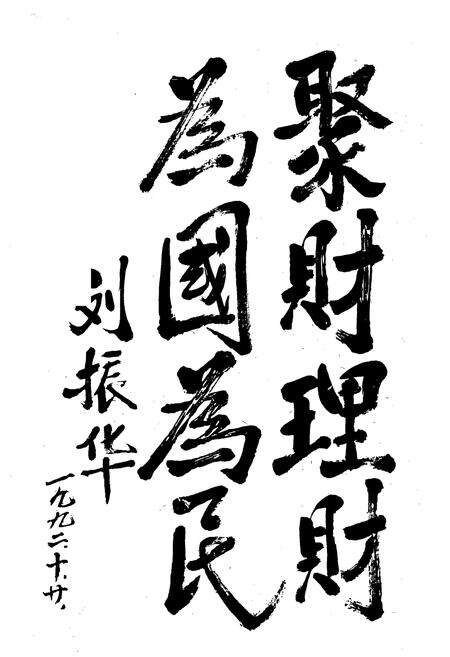 聚財理財
為國為民
刘振华
一九九二.十.廿.